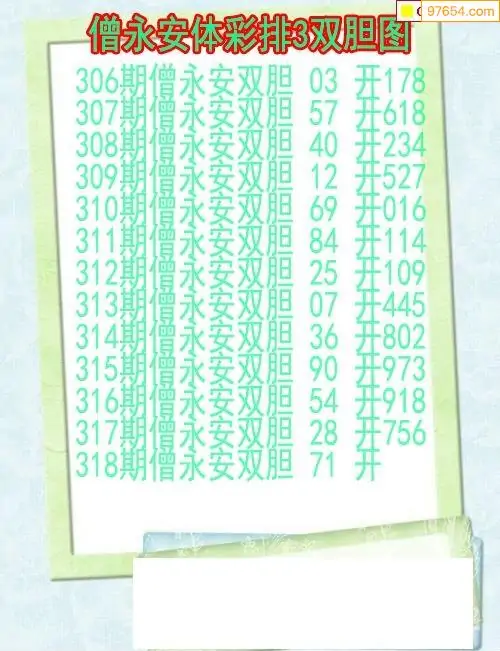 97654.com
僧永安体彩排3双胆图
306期僧永安双胆 03 开178
307期僧永安双胆 57 开618
308期僧永安双胆 40 开234
309期僧永安双胆 12 开527
310期僧永安双胆 69 开016
311期僧永安双胆 84 开114
312期僧永安双胆 25 开109
313期僧永安双胆 07 开445
314期僧永安双胆 36 开802
315期僧永安双胆 90 开973
316期僧永安双胆 54 开918
317期僧永安双胆 28 开756
318期僧永安双胆 71 开